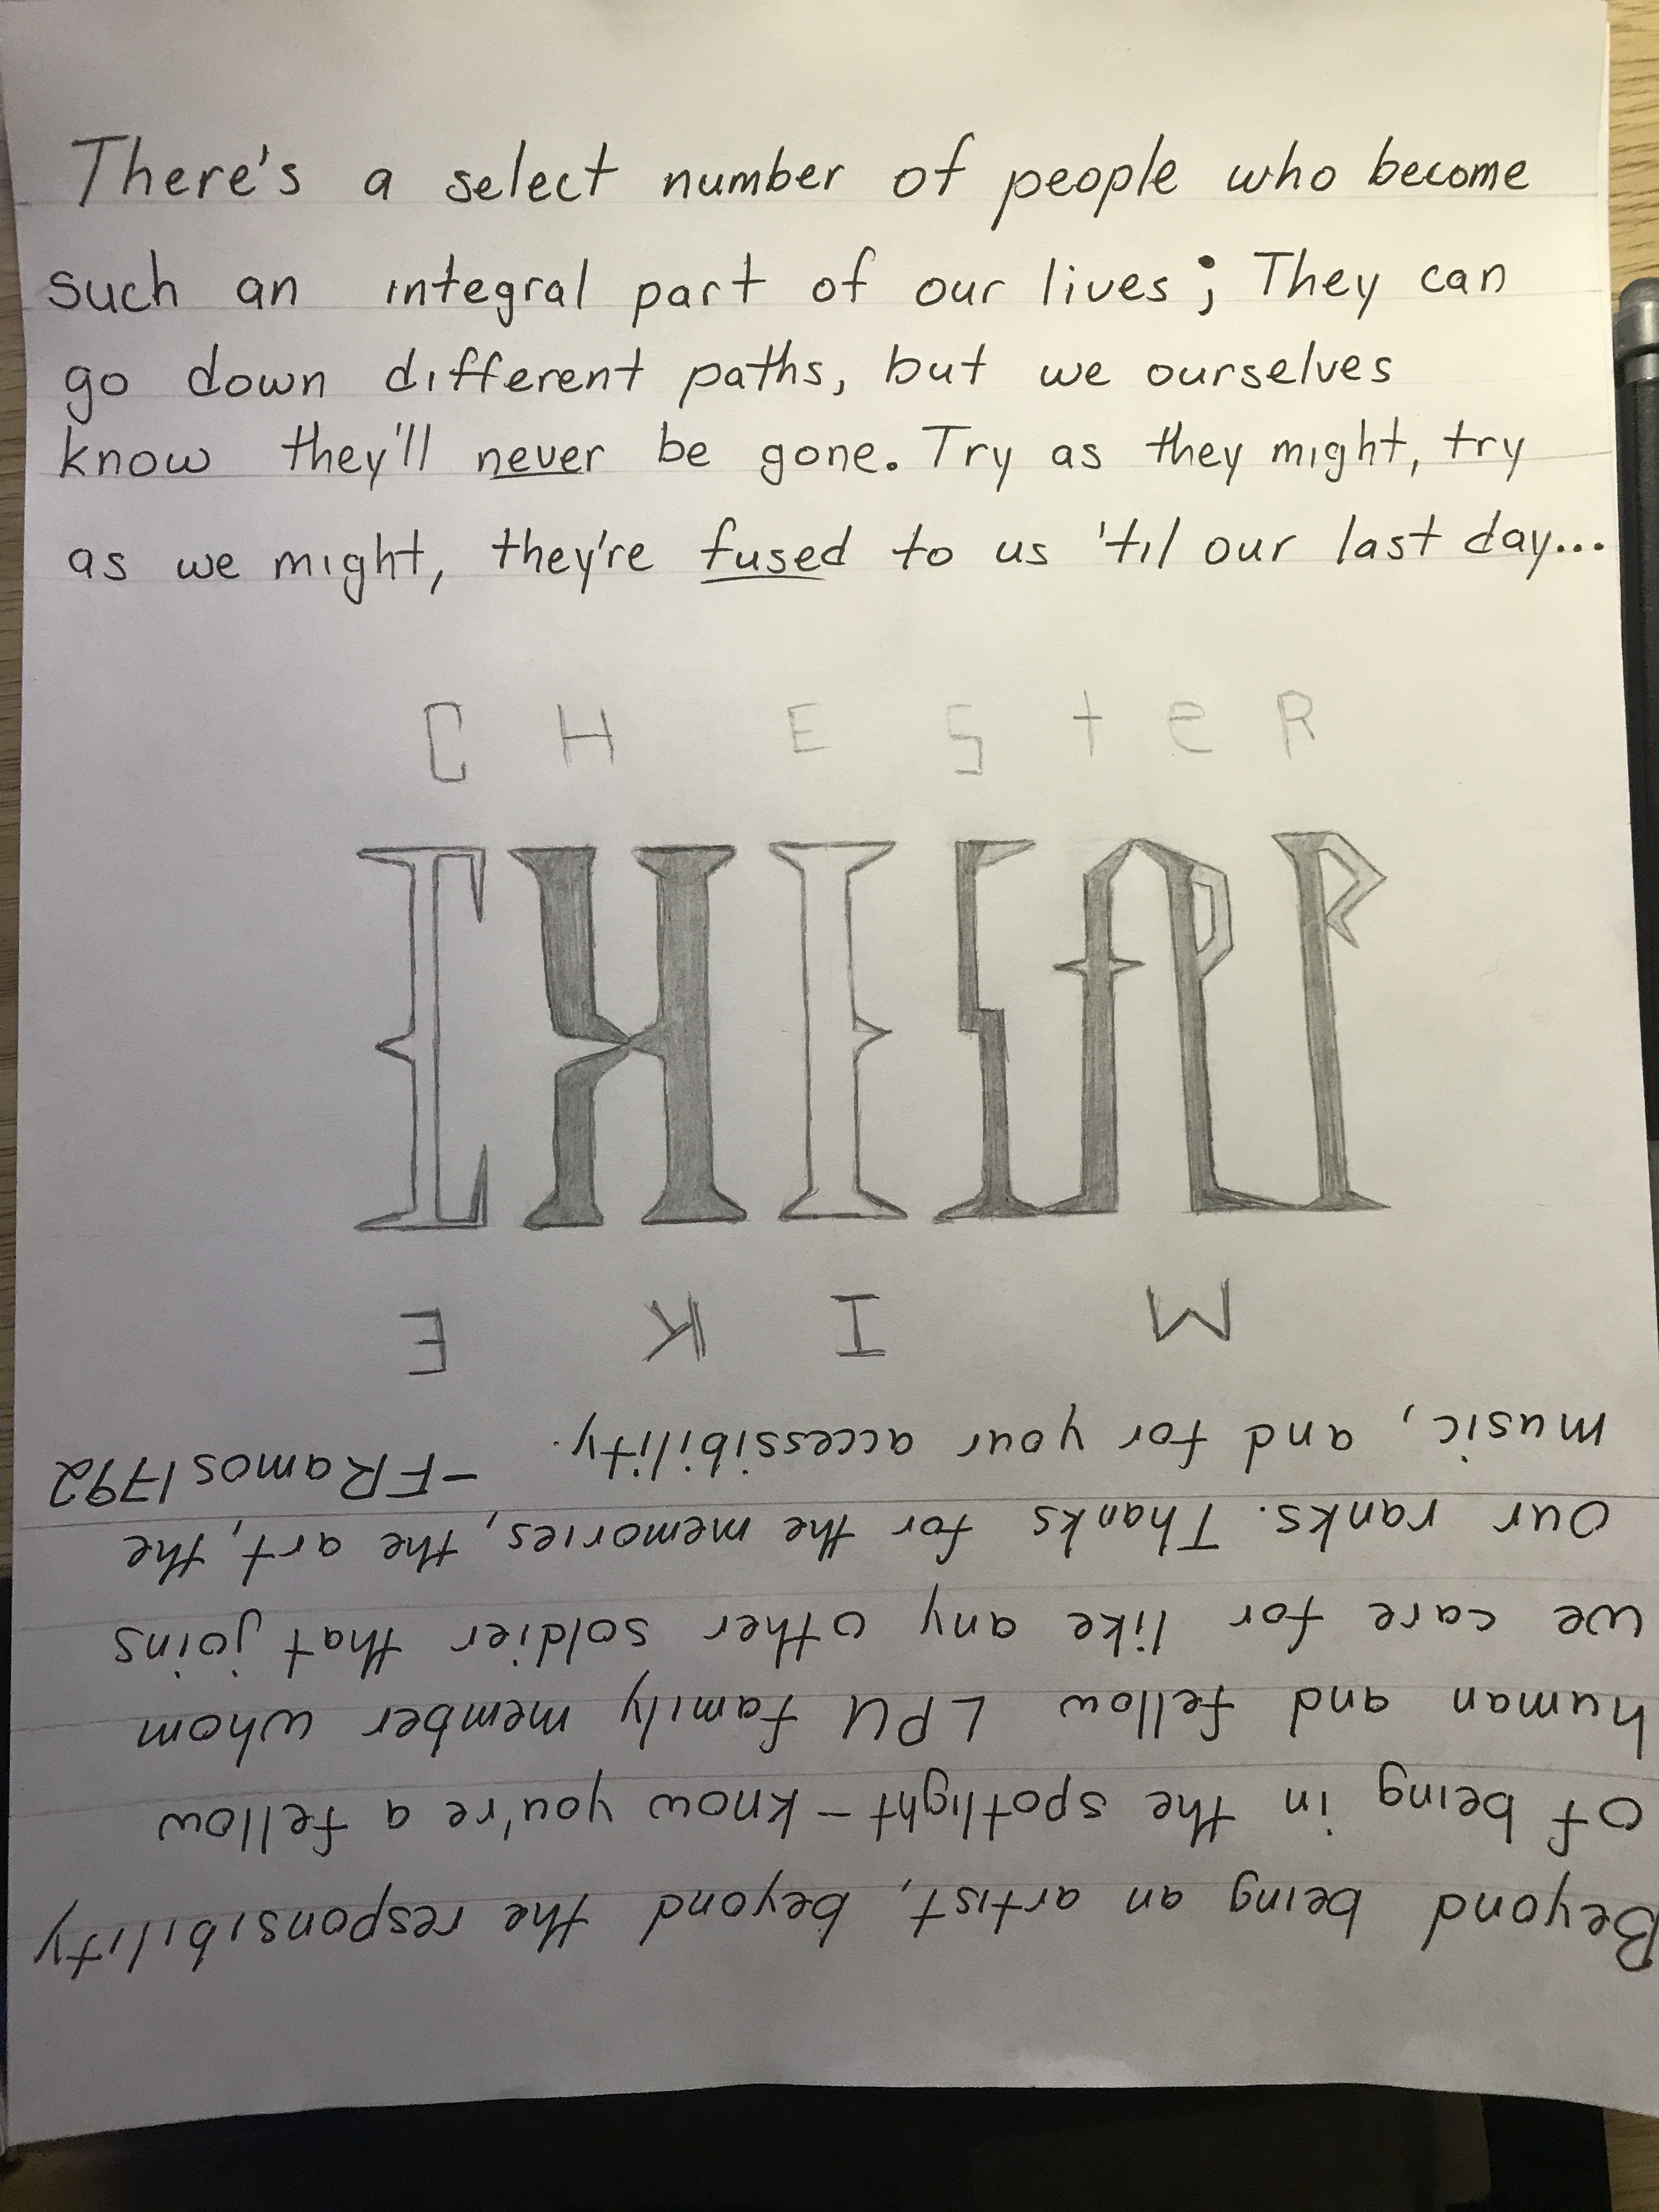 There's a select number of people who become
such an integral part of our lives; They can
go down different paths, but we ourselves
know they'll never be gone. Try as they might, try
as we might, they're fused to us 'til our last day...
C H E S t e R
CHESTER
M I K E
Beyond being an artist, beyond the responsibility
of being in the spotlight - know you're a fellow
human and fellow LPU family member whom
we care for like any other soldier that joins
our ranks. Thanks for the memories, the art, the
music, and for your accessibility. -FRamos1792